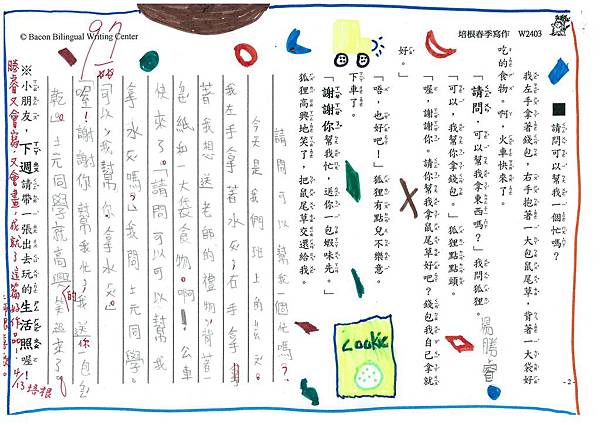 © Bacon Bilingual Writing Center
培根春季寫作 W2403
97
■請問可以幫我一個忙嗎？
我左手拿著錢包，右手抱著一大包鼠尾草，背著一大袋好
吃的食物。啊，火車快來了。
「請問，可以幫我拿東西嗎？」我問狐狸。
「可以，我幫你拿錢包。」狐狸點點頭。
「喔，謝謝你，請你幫我拿鼠尾草好吧？錢包我自己拿就
好。」
「唔，也好吧！」狐狸有點兒不樂意。
下車了。
「謝謝你幫我忙，送你一包蝦味先。」
狐狸高興地笑了，把鼠尾草交還給我。
楊勝睿
請問可以幫我一個忙嗎？
今天是我們班上
我左手拿著水
右手拿
著我想送老師的禮物，背著
一大袋食物。啊！公車
快來了。「請問可以可以幫我
拿水
嗎？」我問
同學。
可以，我幫你拿水
「喔！謝謝你幫我忙，我送你一包
乾。」
同學就高興的笑起來了。
※小朋友，下週請帶一張出去玩的生活照喔！
Cookie
4/13 培根
-2-